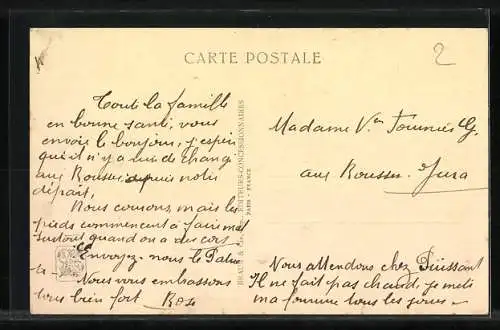 CARTE POSTALE
2
Toute la famille
en bonne santé, vous
envoie le bonjour, j'espère
qu'il n'y a rien de changé
aux Rousses depuis notre
départ,
Nous courons mais les
pieds commencent à faire mal
surtout quand on a des cors
Envoyez-nous le
Nous vous embrassons
tous bien fort
BRAUN & Cie ÉDITEURS-CONCESSIONNAIRES
PARIS - FRANCE
Madame Vve
aux Rousses Jura
Nous attendons chez
Il ne fait pas chaud, je mets
ma fourrure tous les jours